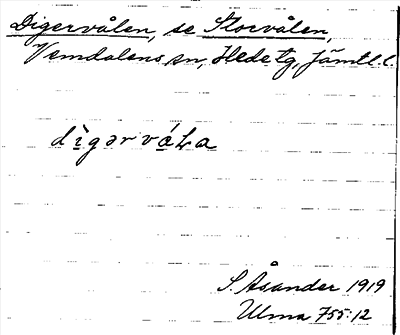 Digervålen, se Storvålen,
Vemdalens sn, Hede tg, Jämtl. l.
dìgərváLa
S. Åsander 1919
Ulma 755:12